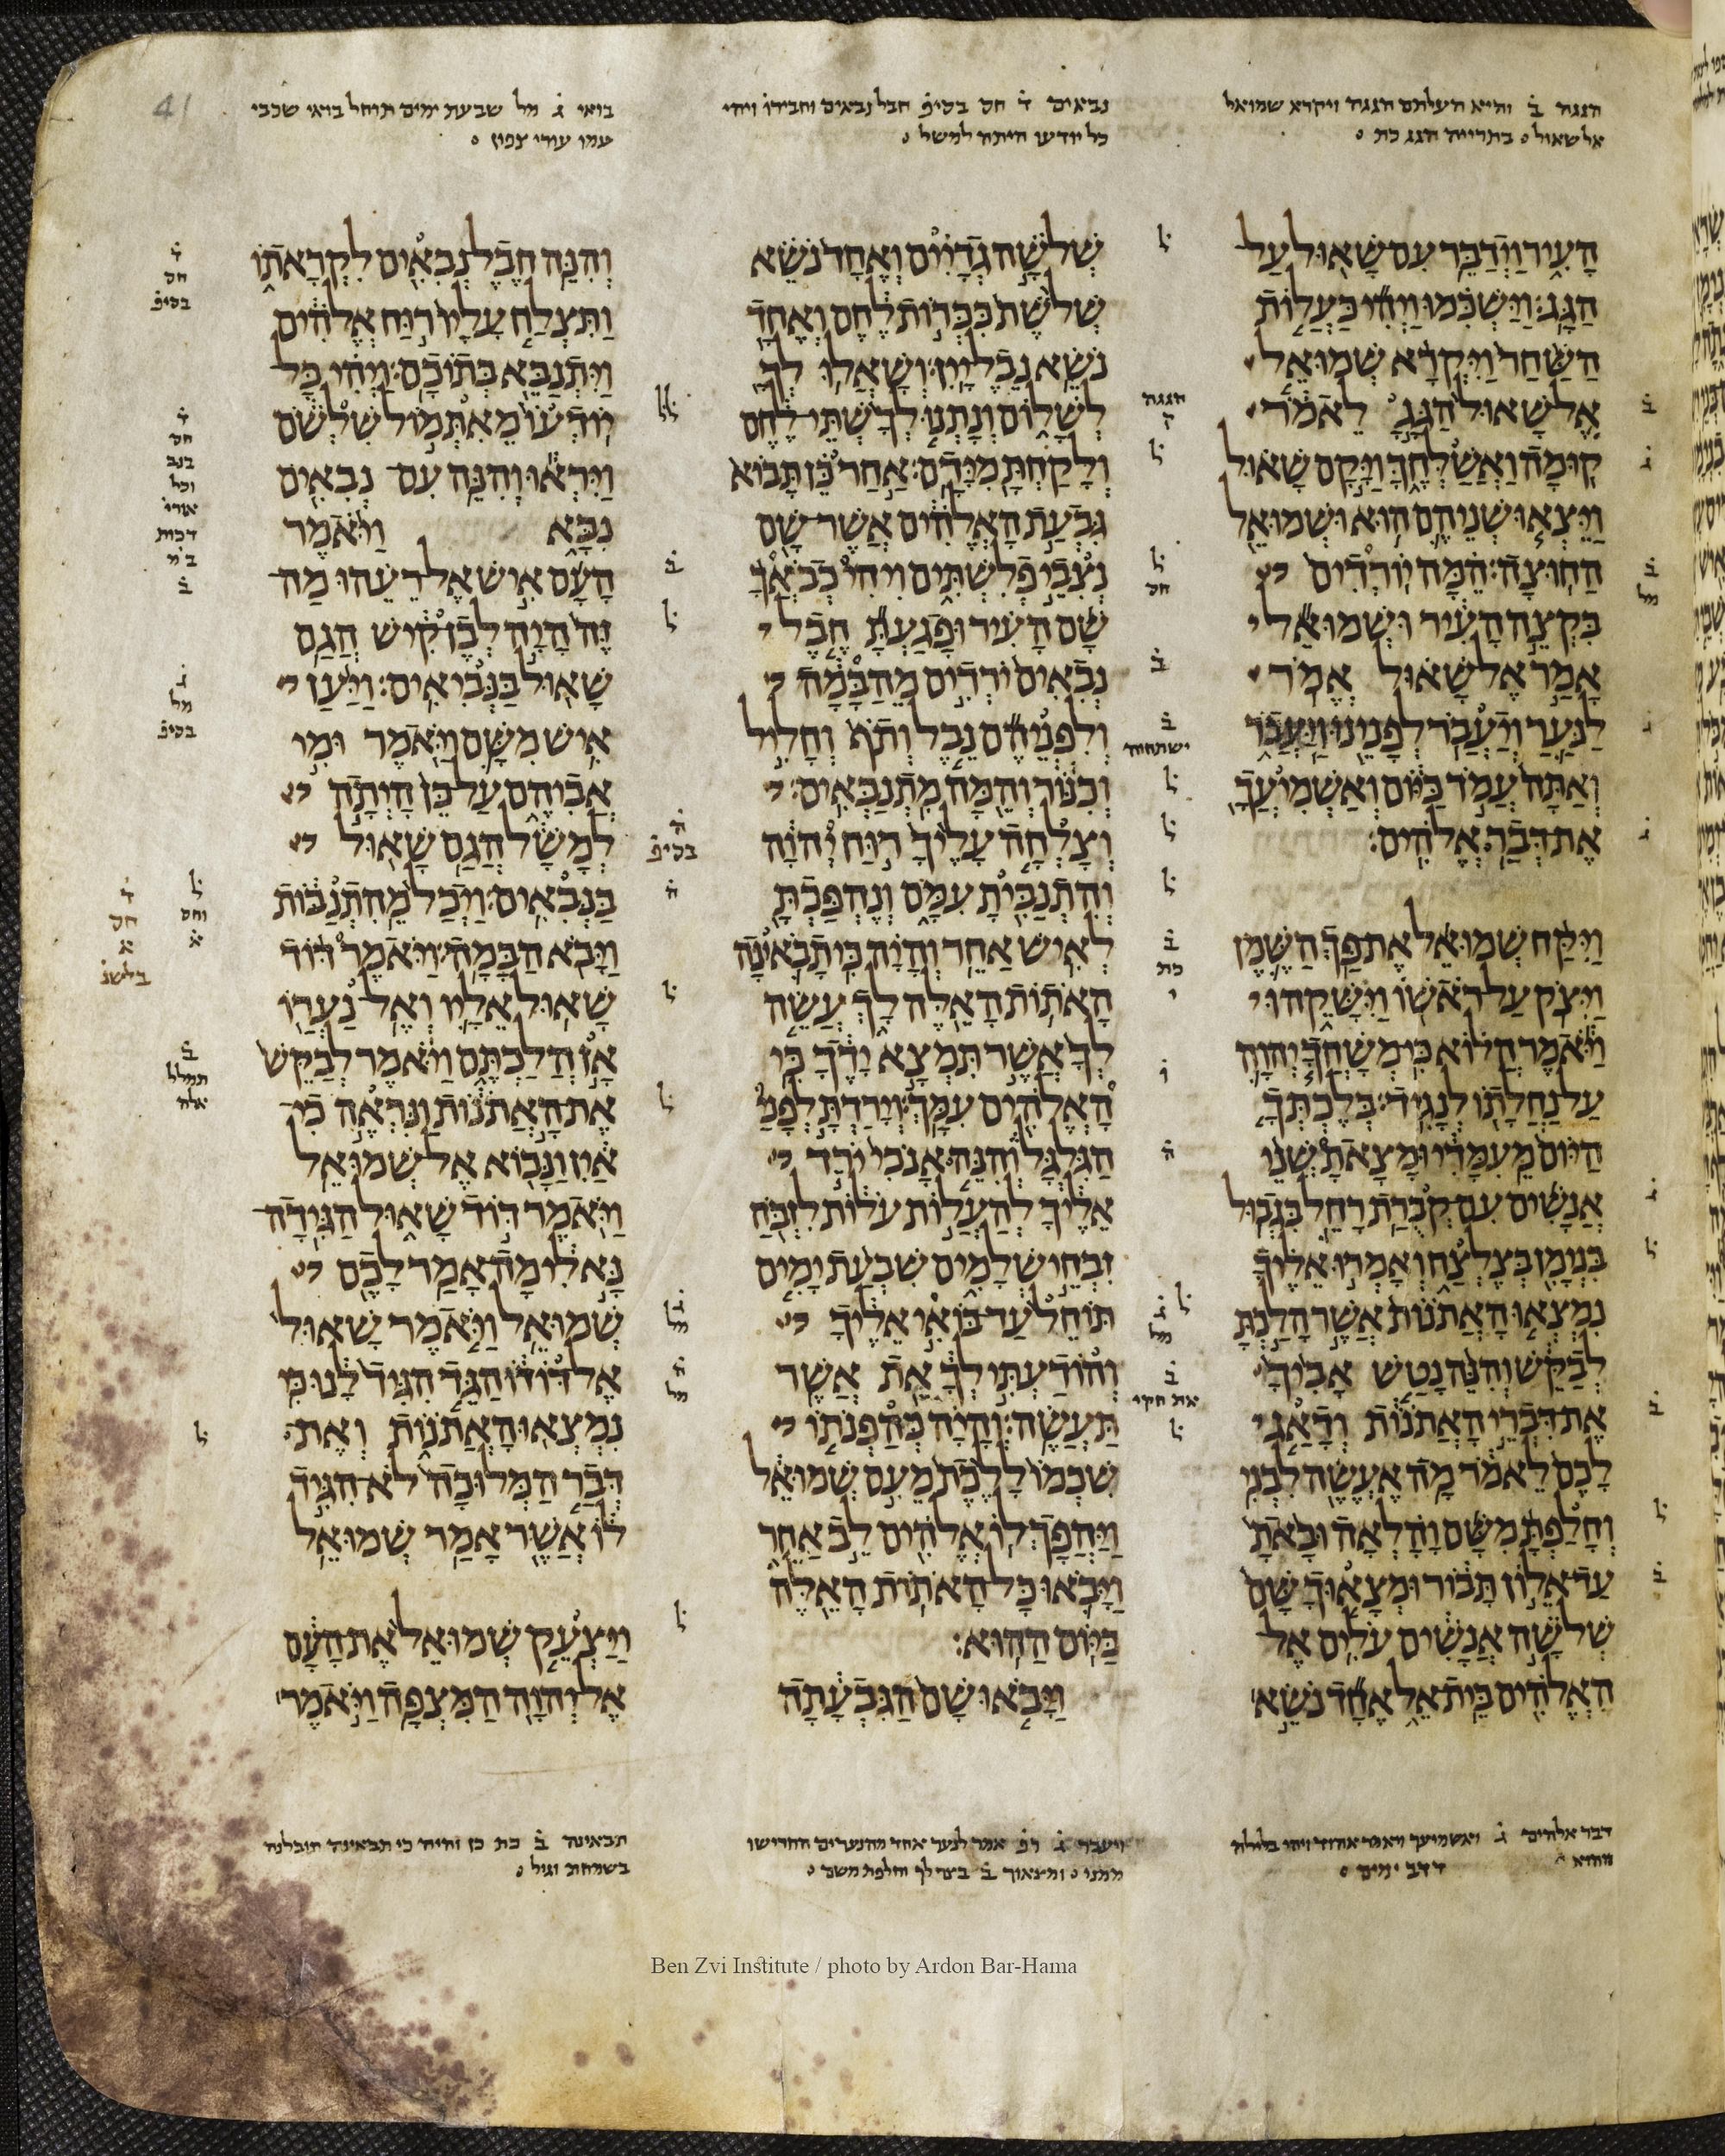 41
הגגה ב והיא העלתם הגגה ויקרא שמואל
אל שאול ○ בתרייה הגג כת ○
נבאים ד חס בסיפ חבל נבאים וחבירו ויהי
כל יודעו היתה למשל ○
בואי ג מל שבעת ימים תוחל בואי שכבי
עמו עורי צפון ○
העיר וידבר עם שאול על
הגג׃ וישכמו ויהי כעלות
השחר ויקרא שמואל
אל שאול הגג לאמר
קומה ואשלחך ויקם שאול
ויצאו שניהם הוא ושמואל
החוצה׃ המה יורדים
בקצה העיר ושמואל
אמר אל שאול אמר
לנער ויעבר לפנינו ויעבר
ואתה עמד כיום ואשמיעך
את דבר אלהים׃
ויקח שמואל את פך השמן
ויצק על ראשו וישקהו
ויאמר הלוא כי משחך יהוה
על נחלתו לנגיד׃ בלכתך
היום מעמדי ומצאת שני
אנשים עם קברת רחל בגבול
בנימן בצלצח ואמרו אליך
נמצאו האתנות אשר הלכת
לבקש והנה נטש אביך
את דברי האתנות ודאג
לכם לאמר מה אעשה לבני
וחלפת משם והלאה ובאת
עד אלון תבור ומצאוך שם
שלשה אנשים עלים אל
האלהים בית אל אחד נשא
שלשה גדיים ואחד נשא
שלשת ככרות לחם ואחד
נשא נבל יין׃ ושאלו לך
לשלום ונתנו לך שתי לחם
ולקחת מידם׃ אחר כן תבוא
גבעת האלהים אשר שם
נצבי פלשתים ויהי כבאך
שם העיר ופגעת חבל
נבאים ירדים מהבמה
ולפניהם נבל ותף וחליל
וכנור והמה מתנבאים׃
וצלחה עליך רוח יהוה
והתנבית עמם ונהפכת
לאיש אחר׃ והיה כי תבאינה
האתות האלה לך עשה
לך אשר תמצא ידך כי
האלהים עמך׃ וירדת לפני
הגלגל והנה אנכי ירד
אליך להעלות עלות לזבח
זבחי שלמים שבעת ימים
תוחל עד בואי אליך
והודעתי לך את אשר
תעשה׃ והיה כהפנתו
שכמו ללכת מעם שמואל
ויהפך לו אלהים לב אחר
ויבאו כל האתות האלה
ביום ההוא׃
ויבאו שם הגבעתה
והנה חבל נבאים לקראתו
ותצלח עליו רוח אלהים
ויתנבא בתוכם׃ ויהי כל
יודעו מאתמול שלשם
ויראו והנה עם נבאים
נבא ויאמר
העם איש אל רעהו מה
זה היה לבן קיש הגם
שאול בנביאים׃ ויען
איש משם ויאמר ומי
אביהם על כן היתה
למשל הגם שאול
בנבאים׃ ויכל מהתנבות
ויבא הבמה׃ ויאמר דוד
שאול אליו ואל נערו
אן הלכתם ויאמר לבקש
את האתנות ונראה כי
אין ונבוא אל שמואל
ויאמר דוד שאול הגידה
נא לי מה אמר לכם
שמואל׃ ויאמר שאול
אל דודו הגד הגיד לנו כי
נמצאו האתנות ואת
דבר המלוכה לא הגיד
לו אשר אמר שמואל
ויצעק שמואל את העם
אל יהוה המצפה׃ ויאמר
דבר אלהים ג ואשמיעך ויאמר אהוד ויהי בלילה
ההוא דדב ימים ○
ויעבר ג רפ אמר לנער אחד מהנערים החרישו
ממנו ○ ומצאוך ב בצר לך וחלפת משם ○
תבאינה ב כת כן והיה כי תבאינה תובלנה
בשמחת וגיל ○
Ben Zvi Institute / photo by Ardon Bar-Hama